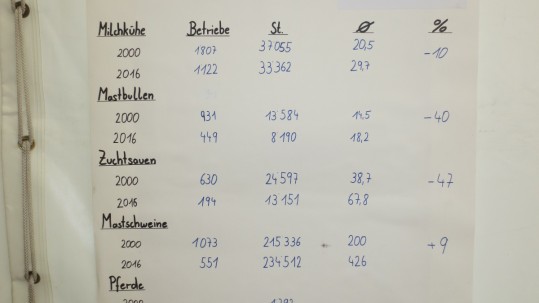 Milchkühe Betriebe St. Ø %
2000 1807 37055 20,5 -10
2016 1122 33362 29,7
Mastbullen
2000 931 13584 14,5 -40
2016 449 8190 18,2
Zuchtsauen
2000 630 24597 38,7 -47
2016 194 13151 67,8
Mastschweine
2000 1073 215336 200 +9
2016 551 234512 426
Pferde
2000